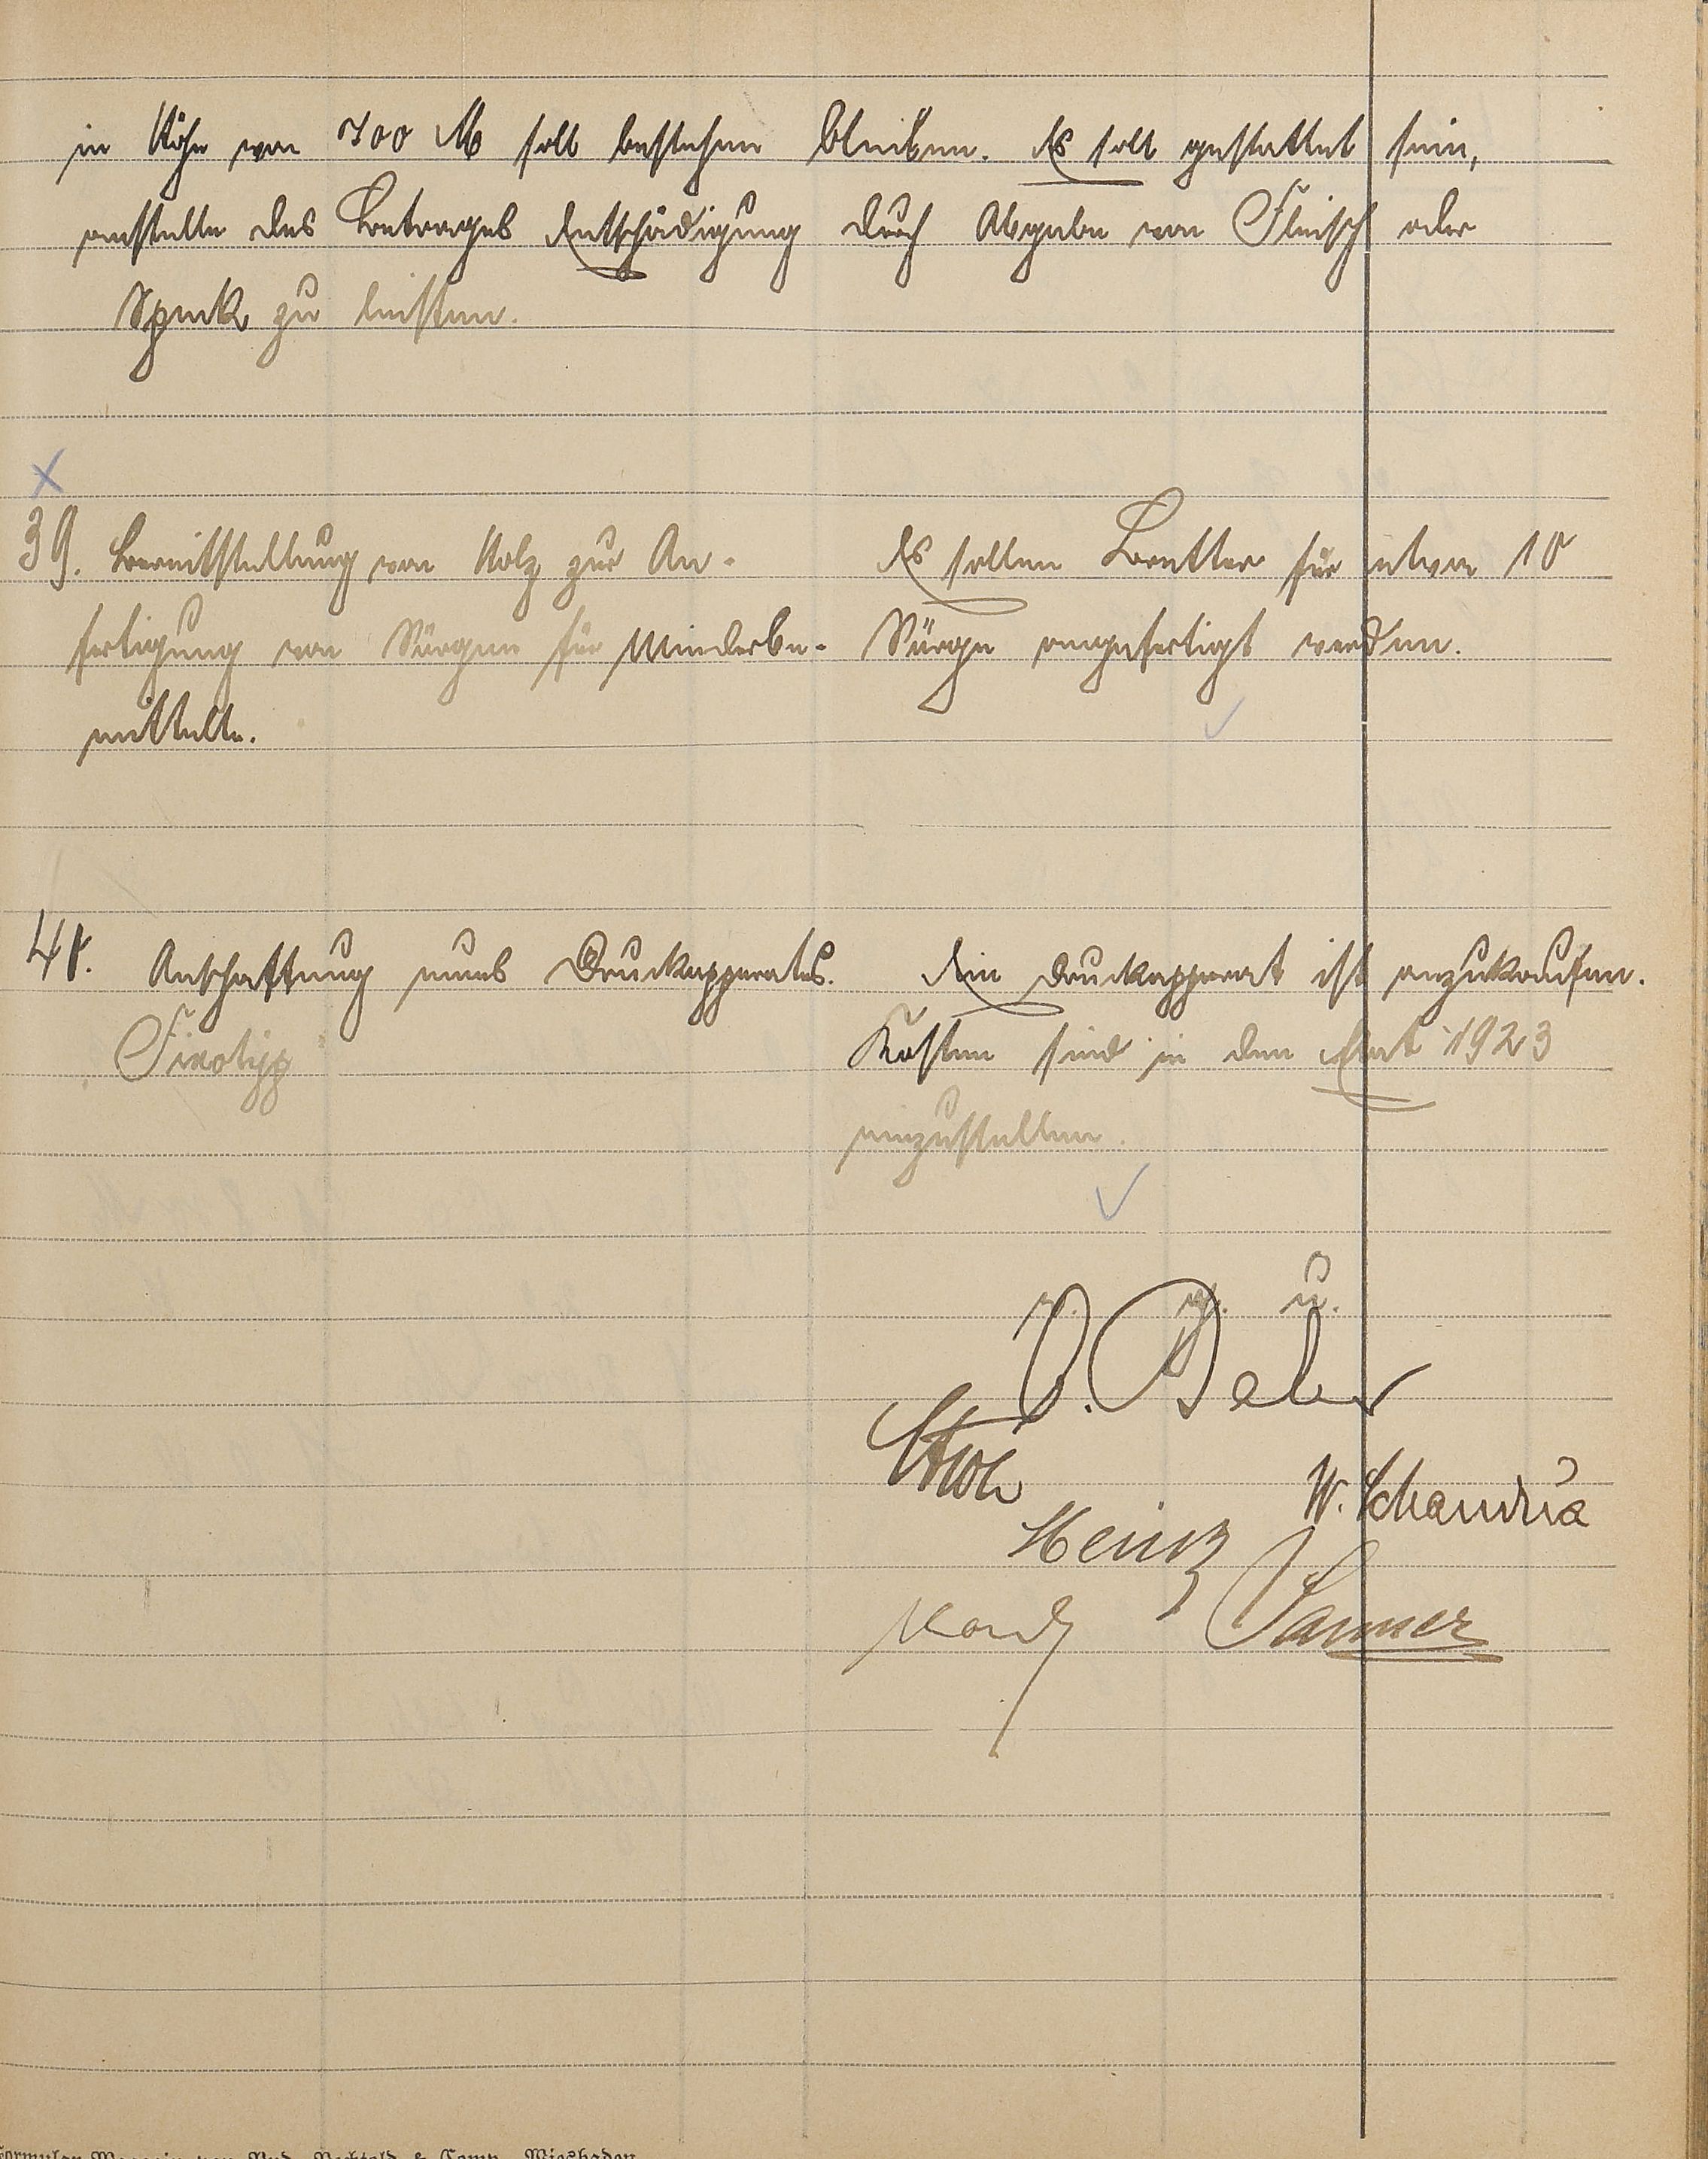 in Höhe von 700 M soll bestehen bleiben. Es soll gestattet sein,
anstelle des Betrages Entschädigung durch Abgabe von Fleisch oder
Speck zu leisten.
39. Bereitstellung von Holz zur An-
fertigung von Särgen für Minderbe-
mittelte.
Es sollen Bretter für etwa 10
Särge angefertigt werden.
Anschaffung eines Druckapparates.
Fixotyp
Ein Druckapparat ist anzukaufen.
Kosten sind in den Etat 1923
einzustellen.
v. g. u.
Heinz
W. Schandua
Sanner
Formular-Magazin von Rud. Bechtold & Comp., Wiesbaden